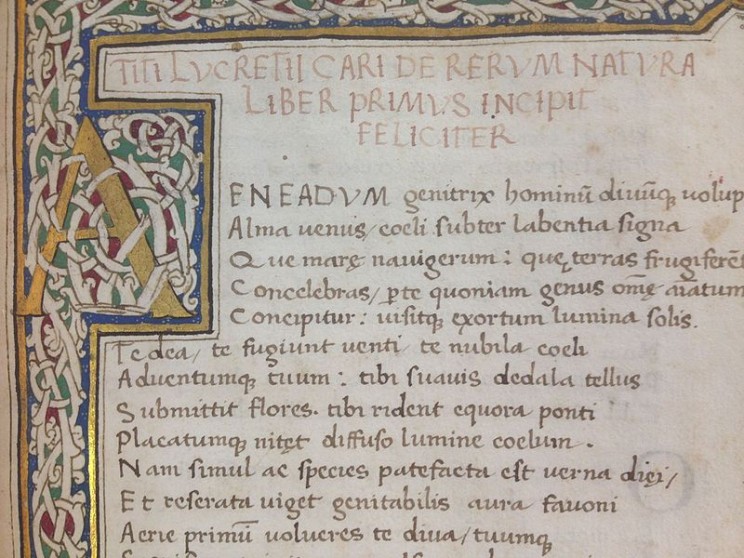 TITI LVCRETII CARI DE RERVM NATVRA
LIBER PRIMVS INCIPIT
FELICITER
AENEADVM genitrix hominū diuūq uolup
Alma uenus/ coeli subter labentia signa
Que marę nauigerum: quę terras frugiferēt
Concelebras/ ꝑte quoniam genus omę aīatum
Concipitur: uisitq exortum lumina solis.
Te dea/ te fugiunt uenti/ te nubila coeli
Aduentumq tuum: tibi suauis dedala tellus
Submittit flores. tibi rident equora ponti
Placatumq nitęt diffuso lumine coelum.
Nam simul ac species patefacta est uerna dięi/
Et reserata uiget genitabilis aura fauoni
Aerie primū uolucres te diua/ tuumq